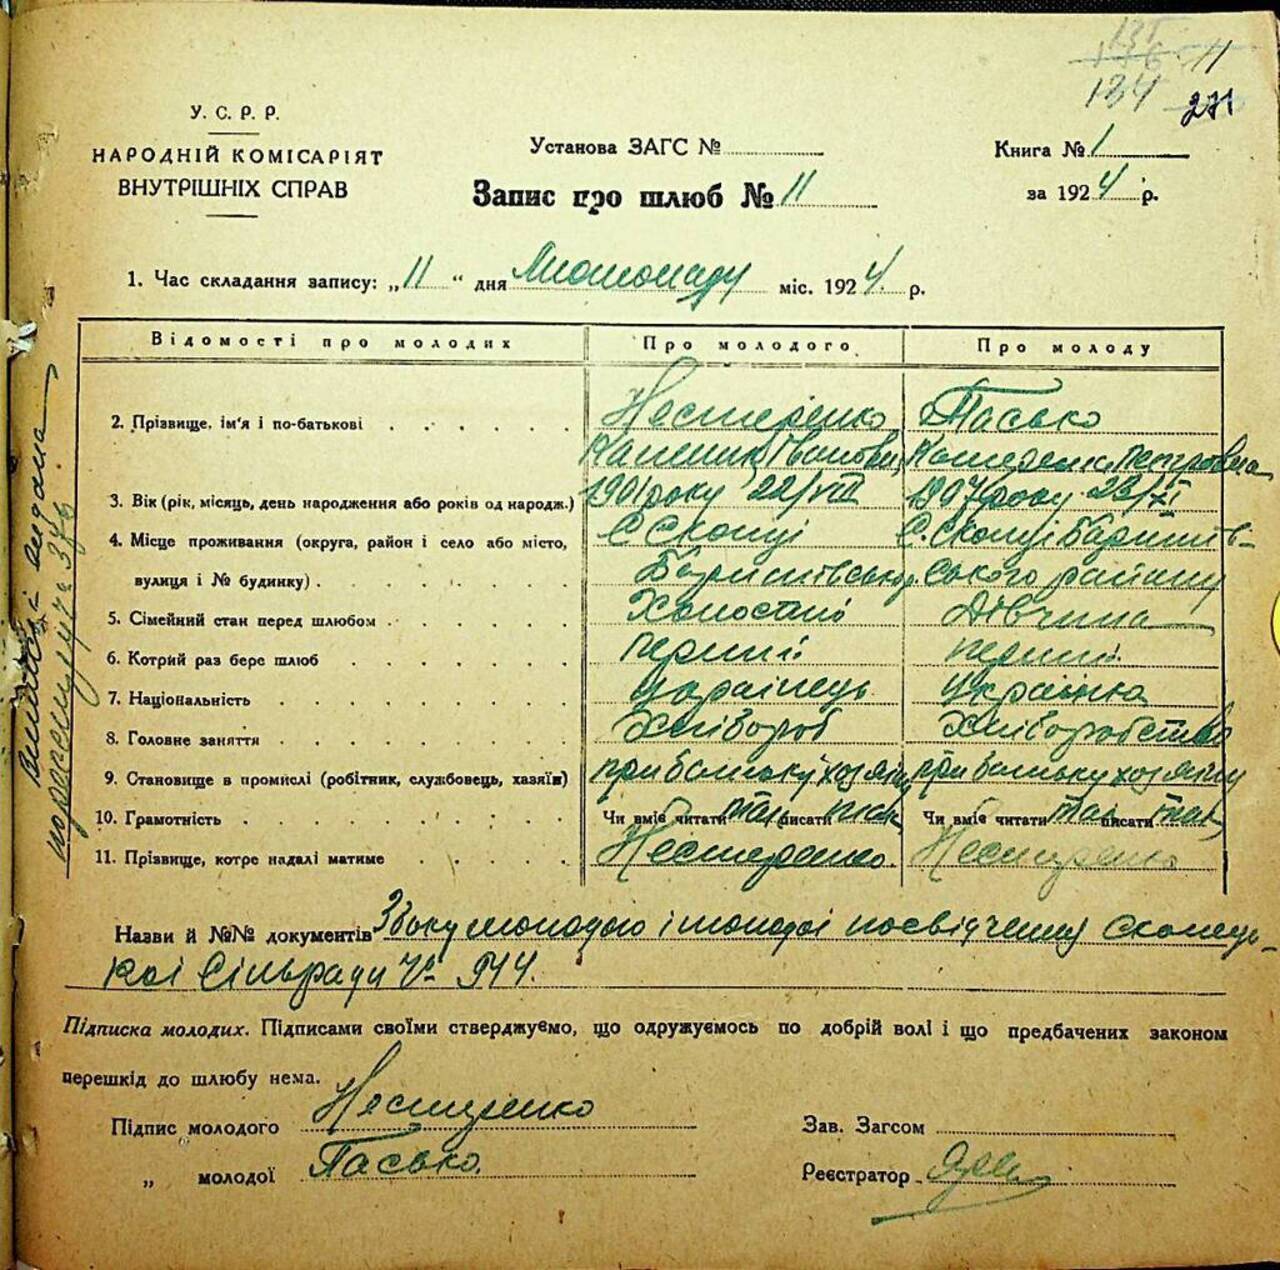 134
11
271
У. С. Р. Р.
НАРОДНІЙ КОМІСАРІЯТ
ВНУТРІШНІХ СПРАВ
Установа ЗАГС №
Запис про шлюб № 11
Книга № 1
за 1924 р.
1. Час складання запису: „11“ дня Листопаду міс. 1924 р.
Відомості про молодих Про молодого Про молоду
2. Прізвище, ім'я і по-батькові Нестеренко Пасько
Іванович Катерина Петровна
3. Вік (рік, місяць, день народження або років од народж.) 1901 року 22/VIII 1907 року 23/XI
4. Місце проживання (округа, район і село або місто, С Скопці С. Скопці Баришів-
вулиця і № будинку) Баришівського р. ського району
5. Сімейний стан перед шлюбом Холостий Дівчина
6. Котрий раз бере шлюб перший перший
7. Національність Українець Українка
8. Головне заняття Хлібороб Хліборобство
9. Становище в промислі (робітник, службовець, хазяїн) при батьку хозяїну при батьку хозяїну
10. Грамотність Чи вміє читати так писати так Чи вміє читати так писати так
11. Прізвище, котре надалі матиме Нестеренко Нестеренко
Назви й №№ документів З боку молодого і молодої посвідчення Скопець-
кої Сільради № 944.
Підписка молодих. Підписами своїми стверджуємо, що одружуємось по добрій волі і що предбачених законом
перешкід до шлюбу нема.
Підпис молодого Нестеренко
„ молодої Пасько
Зав. Загсом
Реєстратор